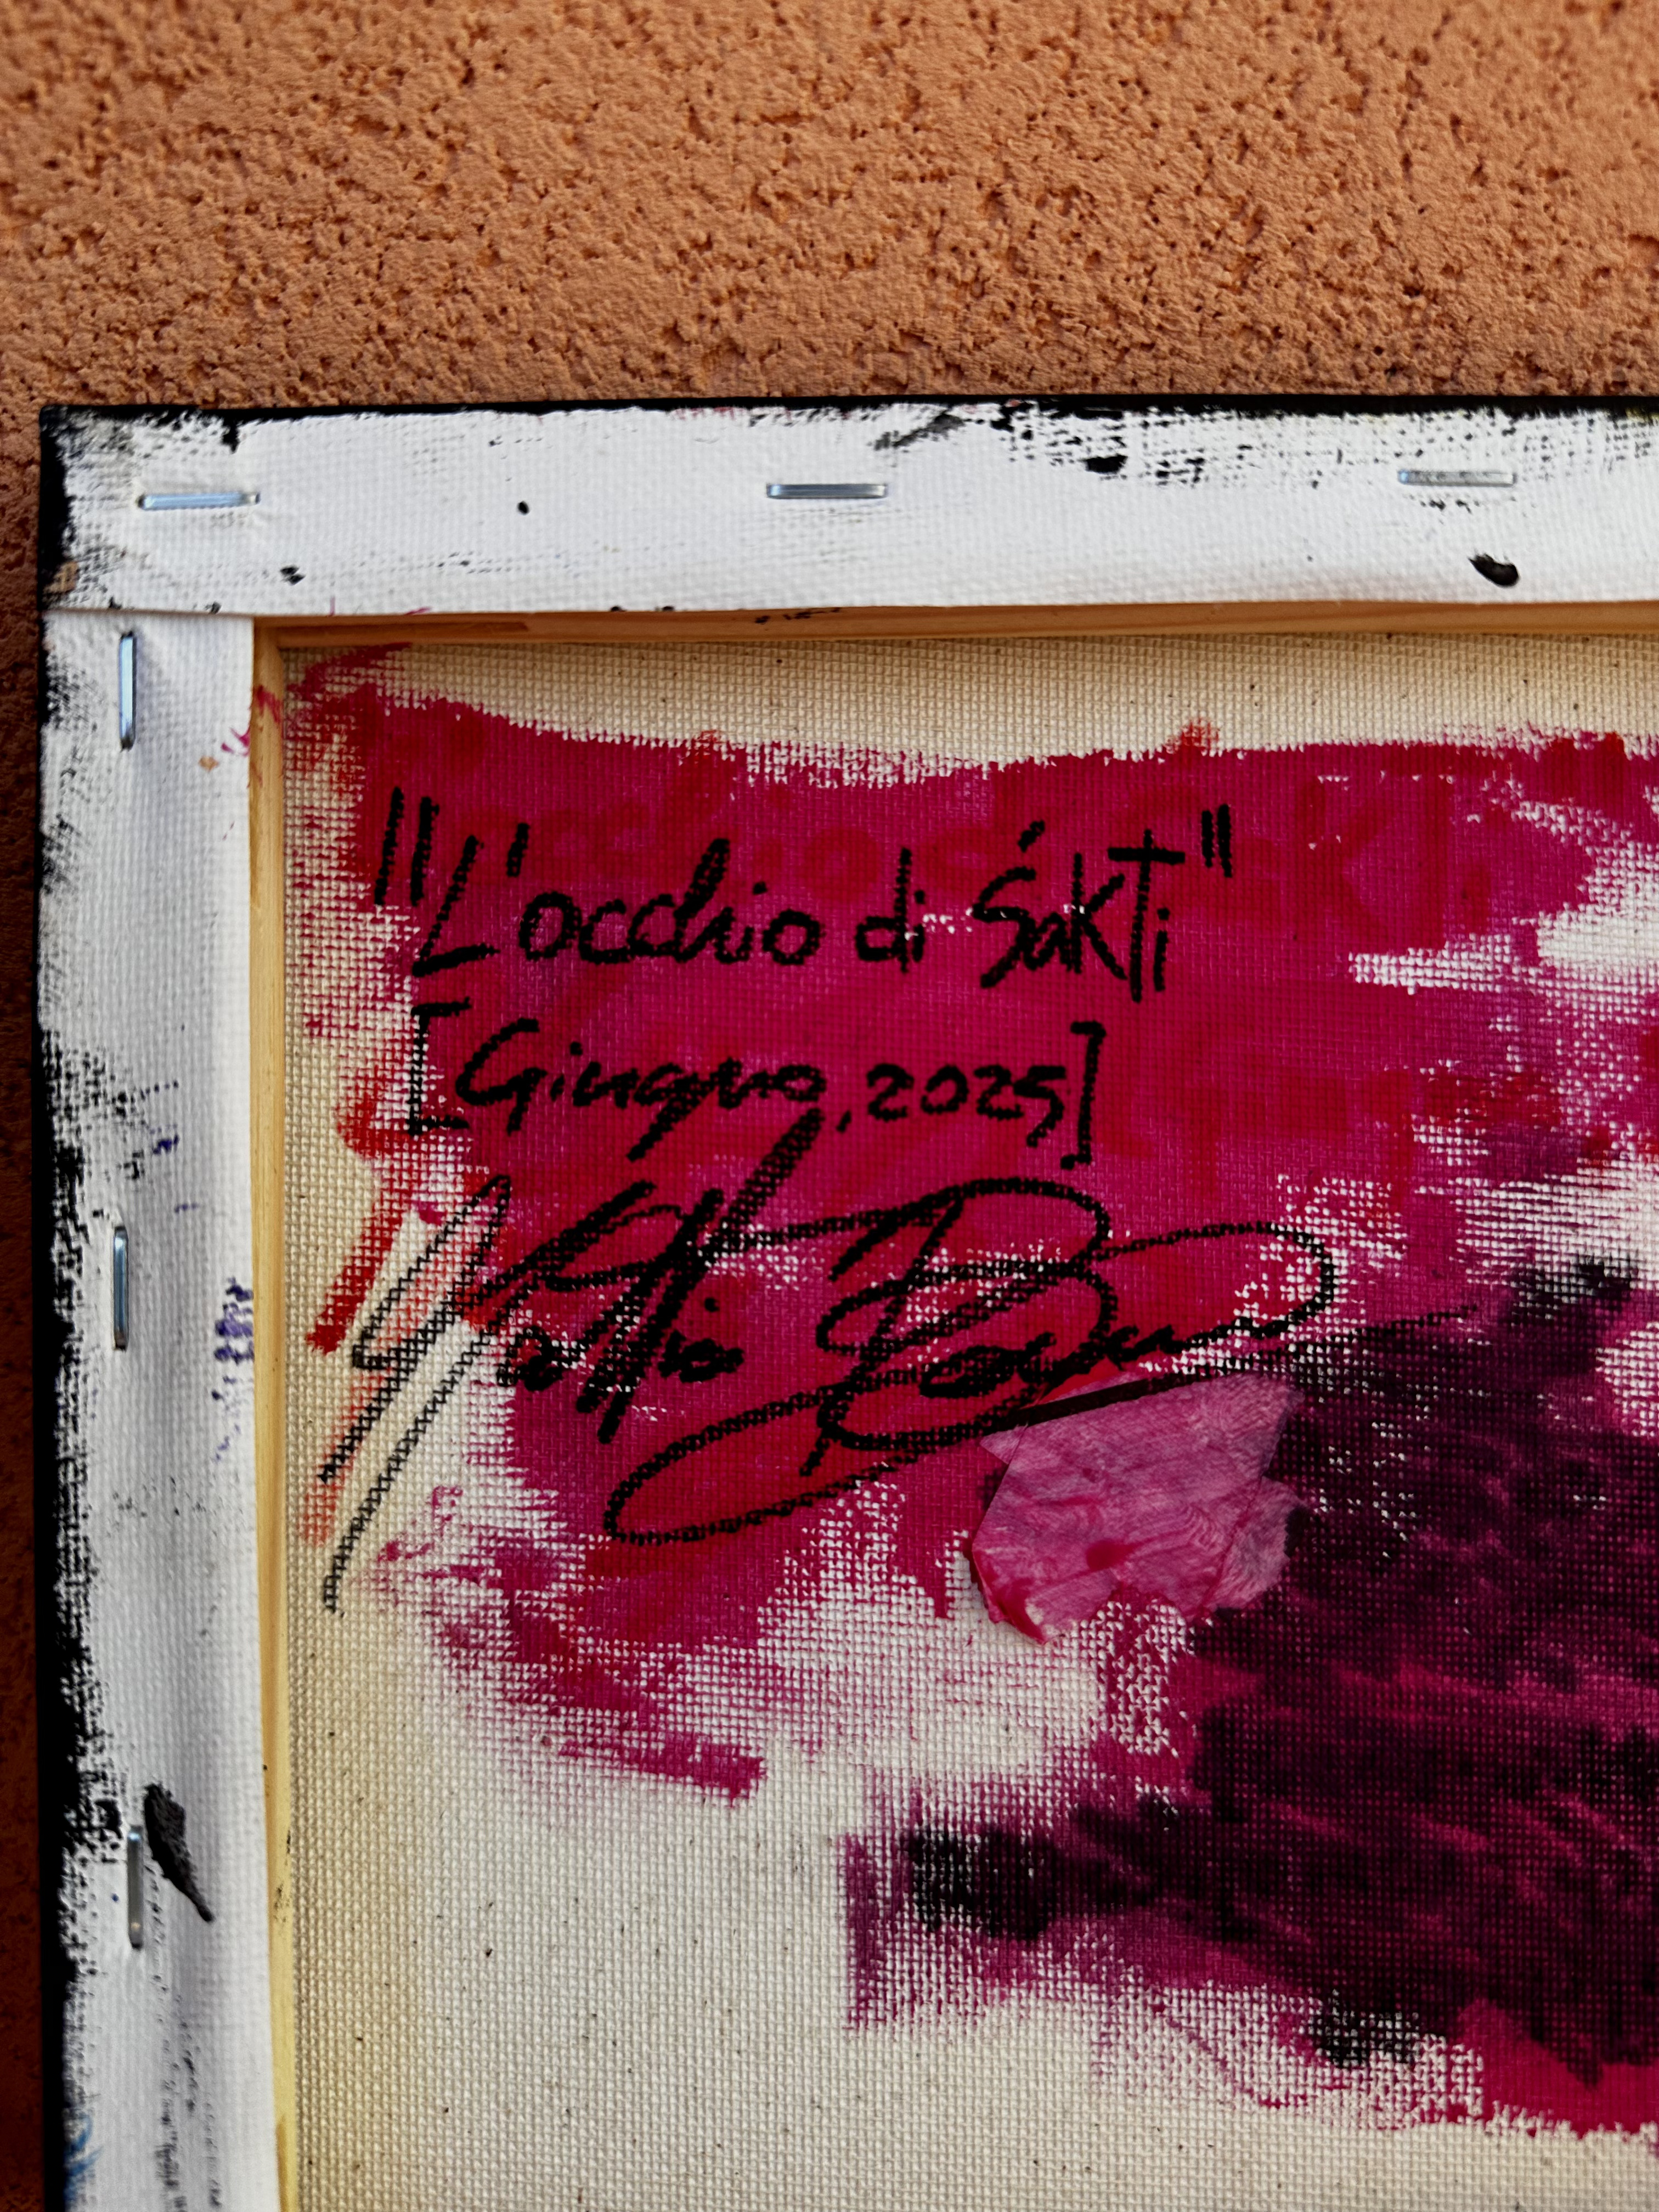 "L'occhio di Śakti"
[Giugno, 2025]
Mattia